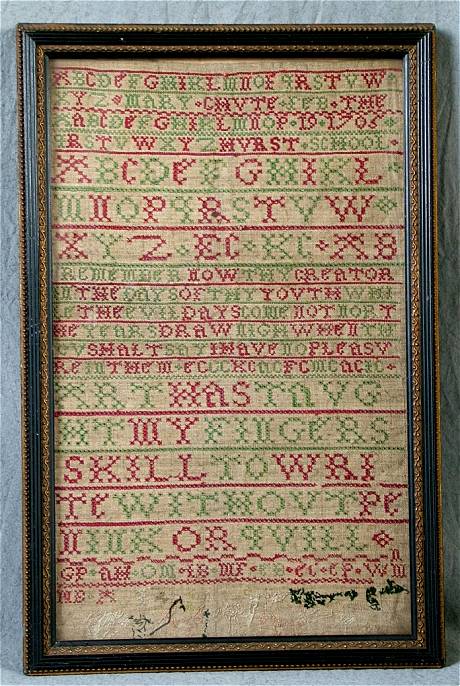 ABCDEFGHIKLMNOPQRSTVW
YZ MARY CHVTE FEB THE
ABCDEFGHIKLMNOP 19 1706
RST WXYZ HVRST SCHOOL
ABCDEFGHIKL
MNOPQRSTVW
XYZ EC KC
REMEMBER NOW THY CREATOR
IN THE DAYS OF THY YOVTH WHI
LE THE EVIL DAYS COME NOT NOR T
HE YEARS DRAW NIGH WHEN TH
OV SHALT SAY I HAVE NO PLEASV
RE IN THEM
HAS TAVG
HT MY FINGERS
SKILL TO WRI
TE WITHOVT PE
N INK OR QVILL